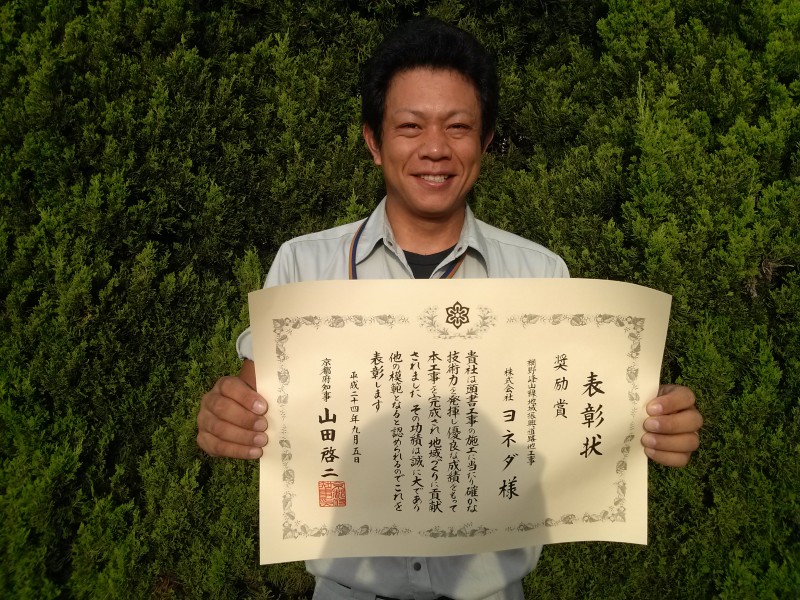 表彰状
奨励賞
網野峰山線地域振興道路他工事
株式会社 ヨネダ 様
貴社は頭書工事の施工に当たり確かな
技術力を発揮し優良な成績をもって
本工事を完成され 地域づくりに貢献
されました その功績は誠に大であり
他の模範となると認められるのでこれを
表彰します
平成二十四年九月五日
京都府知事 山田啓二